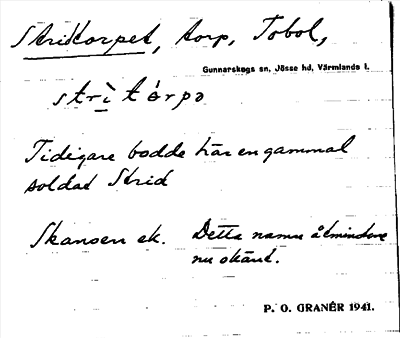 Stridtorpet, torp, Tobol,
Gunnarskogs sn, Jösse hd, Värmlands l.
strìtórpə
Tidigare bodde här en gammal
soldat Strid
Skansen ek. Detta namn åtminstone
nu okänt.
P. O. GRANÉR 1941.